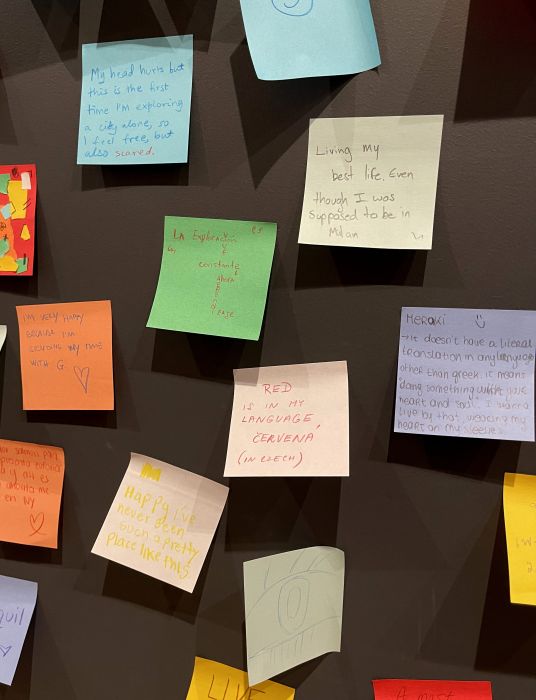 My head hurts but
this is the first
time I'm exploring
a city alone, so
I feel free, but
also scared.
Living my
best life. Even
though I was
supposed to be in
Milan
LA Explicación es
constante
I'M VERY HAPPY
BECAUSE I'M
SPENDING MY TIME
WITH G.
MERAKI
→ it doesn't have a literal
translation in any language
other than greek. it means
doing something with love
heart and soul. I wanna
live by that, wearing my
heart on my sleeves
RED
IS IN MY
LANGUAGE,
ČERVENÁ
(IN CZECH)
en NY
Happy I've
never been
such a pretty
Place like this
quil
LIVE
A most